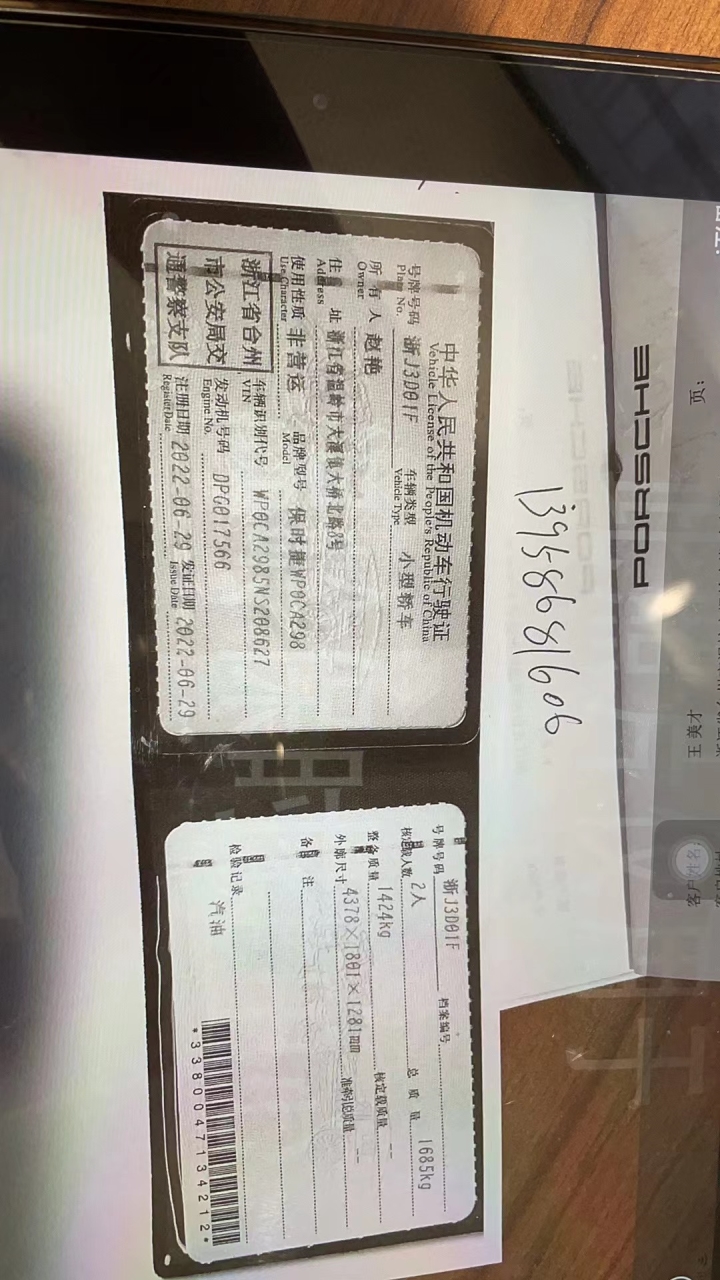 PORSCHE
页：
王美才
13958681606
中华人民共和国机动车行驶证
Vehicle License of the People's Republic of China
号牌号码 浙J3D01F 车辆类型 小型轿车
Plate No. Vehicle Type
所有人 赵艳
Owner
住址 浙江省温岭市大溪镇大桥北路8号
Address
使用性质 非营运 品牌型号 保时捷WP0CA298
Use Character Model
浙江省台州
市公安局交
通警察支队
车辆识别代号 WP0CA2985NS208627
VIN
发动机号码 DPG017566
Engine No.
注册日期 2022-06-29 发证日期 2022-06-29
Register Date Issue Date
号牌号码 浙J3D01F 档案编号
核定载人数 2人 总质量 1685kg
整备质量 1424kg 核定载质量 --
外廓尺寸 4378×1801×1281mm 准牵引总质量 --
备注
检验记录
汽油
*3380047134212*